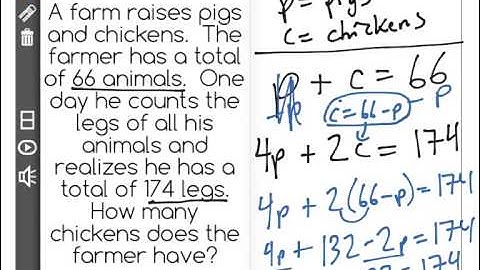 A farm raises pigs
and chickens. The
farmer has a total
of 66 animals. One
day he counts the
legs of all his
animals and
realizes he has a
total of 174 legs.
How many
chickens does the
farmer have?
p = pigs
c = chickens
p + c = 66
-p -p
c = 66 - p
4p + 2c = 174
4p + 2(66-p) = 174
4p + 132 - 2p = 174